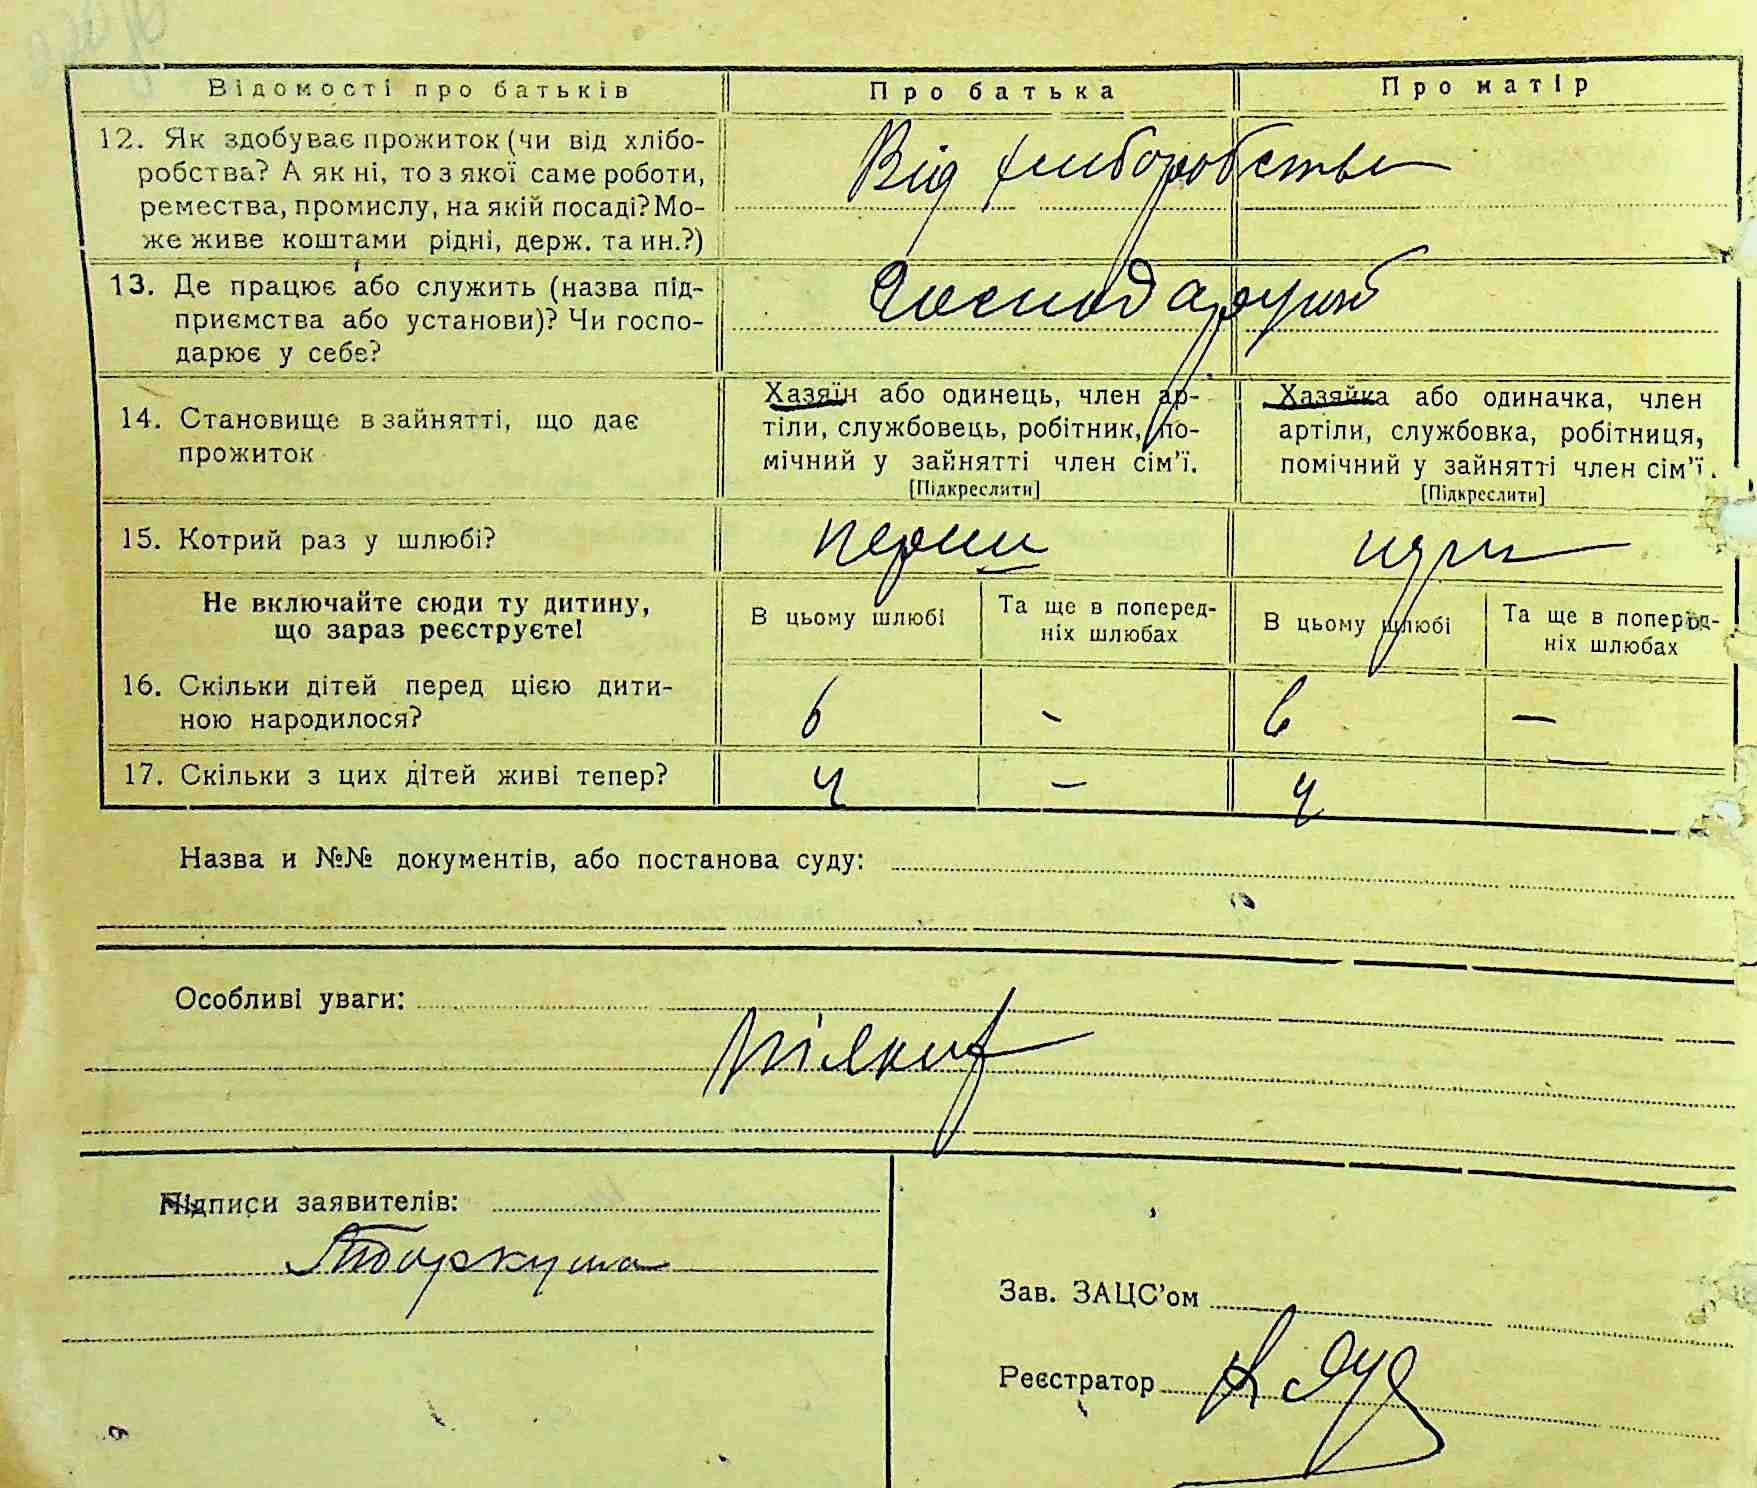 Відомості про батьків
Про батька
Про матір
12. Як здобуває прожиток (чи від хлібо-
робства? А як ні, то з якої саме роботи,
ремества, промислу, на якій посаді? Мо-
же живе коштами рідні, держ. та ин.?)
Від хліборобства
13. Де працює або служить (назва під-
приємства або установи)? Чи госпо-
дарює у себе?
Господарують
14. Становище в зайнятті, що дає
прожиток
Хазяїн або одинець, член ар-
тіли, службовець, робітник, по-
мічний у зайнятті член сім’ї.
[Підкреслити]
Хазяйка або одиначка, член
артіли, службовка, робітниця,
помічний у зайнятті член сім’ї.
[Підкреслити]
15. Котрий раз у шлюбі?
перши
Не включайте сюди ту дитину,
що зараз реєструєте!
В цьому шлюбі
Та ще в поперед-
ніх шлюбах
В цьому шлюбі
Та ще в поперед-
ніх шлюбах
16. Скільки дітей перед цією дити-
ною народилося?
6 - 6 -
17. Скільки з цих дітей живі тепер?
4 - 4
Назва и №№ документів, або постанова суду:
Особливі уваги:
Підписи заявителів:
Зав. ЗАЦС’ом
Реєстратор